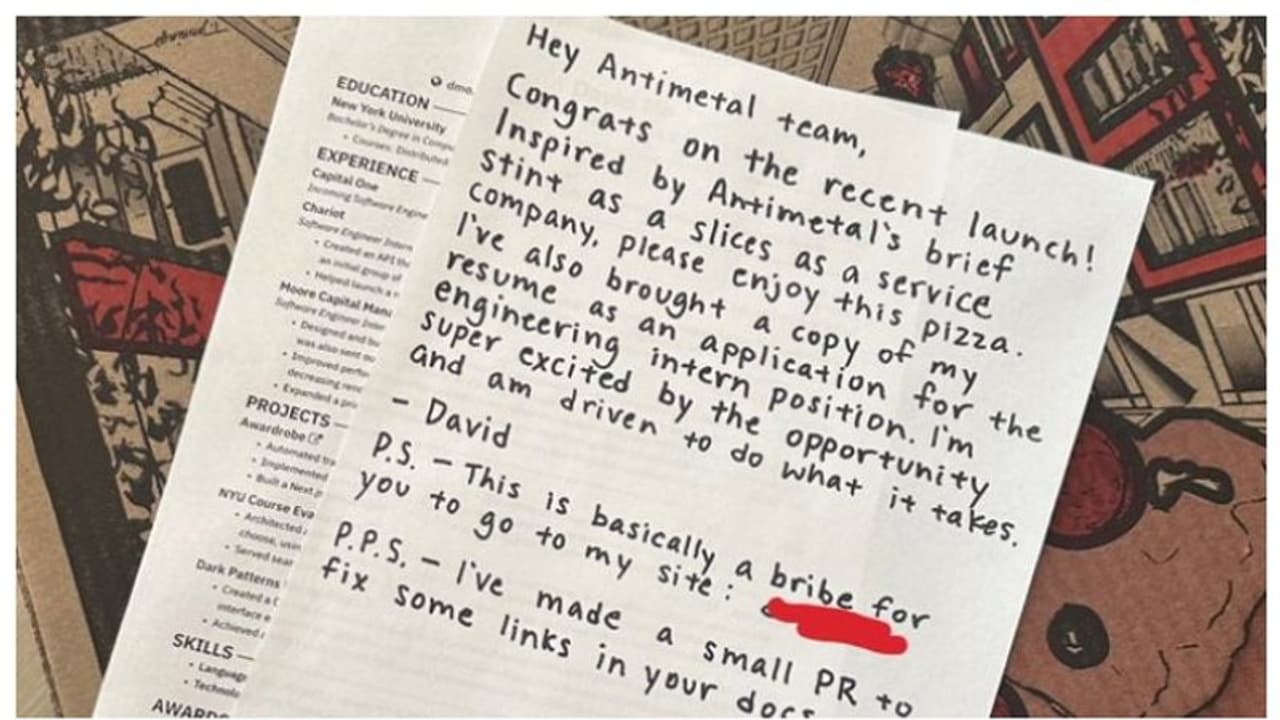 Hey Antimetal team,
Congrats on the recent launch!
Inspired by Antimetal's brief
stint as a slices as a service
company, please enjoy this pizza.
I've also brought a copy of my
resume as an application for the
engineering intern position. I'm
super excited by the opportunity
and am driven to do what it takes.
- David
P.S. - This is basically a bribe for
you to go to my site:
P.P.S. - I've made a small PR to
fix some links in your docs
dmo.
EDUCATION
New York University
Bachelor's Degree in
Courses: Distributed
EXPERIENCE
Capital One
Incoming Software
Chariot
Software Engineer Intern
• Created an API
an initial group of
• Helped launch a
Moore Capital
Software Engineer
• Designed and
was also sent
• Improved
decreasing
• Expanded a
PROJECTS
Awardrobe
• Automated
• Implemented
• Built a
NYU Course
• Architected
choose,
• Served
Dark Patterns
• Created a
interface
• Achieved
SKILLS
•
•